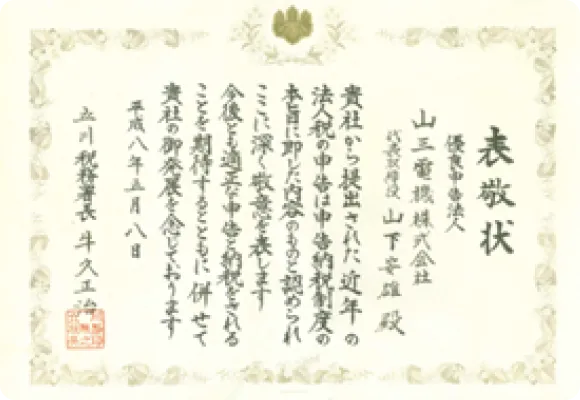 表敬状
優良申告法人
山三電機株式会社
代表取締役 山下安雄 殿
貴社から提出された近年の
法人税の申告は申告納税制度の
本旨に即した内容のものと認められ
ここに深く敬意を表します
今後とも適正な申告と納税をされる
ことを期待するとともに併せて
貴社の御発展を念じております
平成八年五月八日
立川税務署長 牛久正治